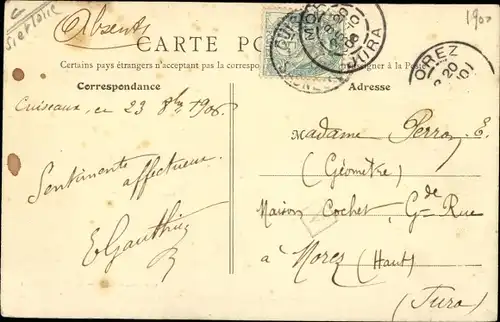 S et Loire
1900
(Absents)
CARTE PO
Certains pays étrangers n'acceptant pas la correspo
enseigner à la Poste
CUIS
MOREZ
JURA
OREZ
20
Correspondance
Adresse
Cuiseaux, ce 23 8bre 1906
Sentiments affectueux
E Gauthier
Madame Perrod, E.
(Géomètre)
Maison Cochet, Gde Rue
à Morez (Haut)
(Jura)